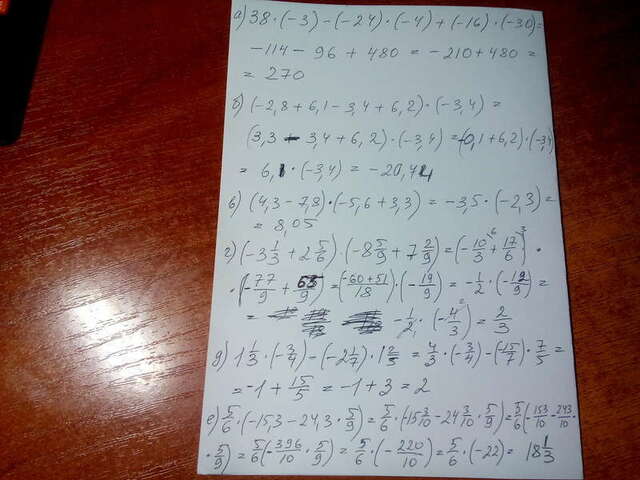 а) 38·(-3)-(-24)·(-4)+(-16)·(-30)=
-114-96+480=-210+480=
=270
б) (-2,8+6,1-3,4+6,2)·(-3,4)=
(3,3-3,4+6,2)·(-3,4)=(-0,1+6,2)·(-3,4)
=6,1·(-3,4)=-20,74
в) (4,3-7,8)·(-5,6+3,3)=-3,5·(-2,3)=
=8,05
г) (-3 1/3+2 5/6)·(-8 5/9+7 2/9)=(-10/3+17/6)·
·(-77/9+65/9)=(-60+51/18)·(-19/9)=-1/2·(-12/9)=
= -1/2·(-4/3)=2/3
д) 1 1/3·(-3/4)-(-2 1/7)·1 2/5=4/3·(-3/4)-(15/7)·7/5=
=-1+15/5=-1+3=2
е) 5/6·(-15,3-24,3·5/9)=5/6·(15 3/10-24 3/10·5/9)=5/6(-153/10-243/10·
·5/9)=5/6(-396/10·5/9)=5/6·(-220/10)=5/6·(-22)=18 1/3